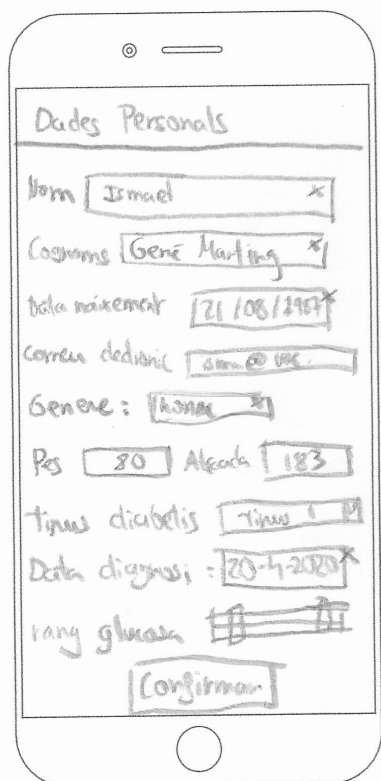 Dades Personals
Nom Ismael x
Cognoms Gené Marting x
Data naixement 21/08/1967 x
Correu @ uoc.
Genere: home x
Pes 80 Alçada 183
tipus diabetis Tipus 1
Data diagnosi: 20-4-2020 x
rang glucosa
Confirmar